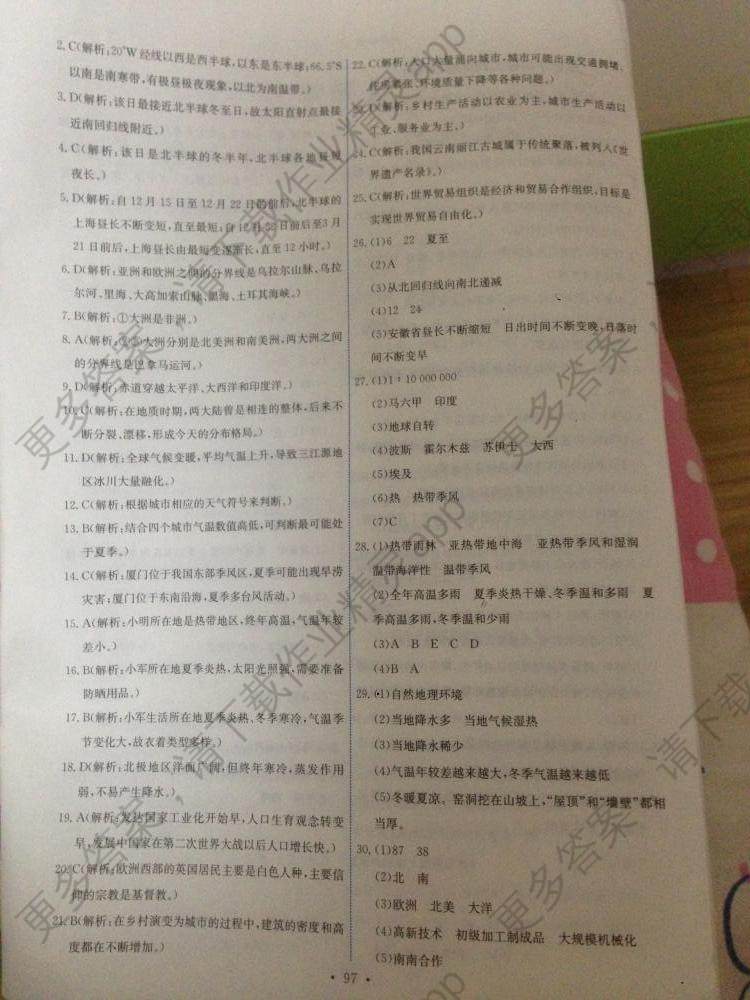 2. C(解析:20°W 经线以西是西半球,以东是东半球;66.5°S
以南是南寒带,有极昼极夜现象,以北为南温带。)
3. D(解析:该日最接近北半球冬至日,故太阳直射点最接
近南回归线附近。)
4. C(解析:该日是北半球的冬半年,北半球各地昼短
夜长。)
5. D(解析:自12月15日至12月22日的前后,北半球的
上海昼长不断变短,直至最短;自12月22日前后至3月
21日前后,上海昼长由最短变逐渐长,直至12小时。)
6. D(解析:亚洲和欧洲之间的分界线是乌拉尔山脉、乌拉
尔河、里海、大高加索山脉、黑海、土耳其海峡。)
7. B(解析:①大洲是非洲。)
8. A(解析:②③大洲分别是北美洲和南美洲,两大洲之间
的分界线是巴拿马运河。)
9. D(解析:赤道穿越太平洋、大西洋和印度洋。)
10. C(解析:在地质时期,两大陆曾是相连的整体,后来不
断分裂、漂移,形成今天的分布格局。)
11. D(解析:全球气候变暖,平均气温上升,导致三江源地
区冰川大量融化。)
12. C(解析:根据城市相应的天气符号来判断。)
13. B(解析:结合四个城市气温数值高低,可判断最可能处
于夏季。)
14. C(解析:厦门位于我国东部季风区,夏季可能出现旱涝
灾害;厦门位于东南沿海,夏季多台风活动。)
15. A(解析:小明所在地是热带地区,终年高温,气温年较
差小。)
16. B(解析:小军所在地夏季炎热,太阳光照强,需要准备
防晒用品。)
17. B(解析:小军生活所在地夏季炎热、冬季寒冷,气温季
节变化大,故衣着类型多样。)
18. D(解析:北极地区洋面广阔,但终年寒冷,蒸发作用
弱,不易产生降水。)
19. A(解析:发达国家工业化开始早,人口生育观念转变
早,发展中国家在第二次世界大战以后人口增长快。)
20. C(解析:欧洲西部的英国居民主要是白色人种,主要信
仰的宗教是基督教。)
21. B(解析:在乡村演变为城市的过程中,建筑的密度和高
度都在不断增加。)
22. C(解析:人口大量涌向城市,城市可能出现交通拥堵、
住房紧张、环境质量下降等各种问题。)
23. D(解析:乡村生产活动以农业为主,城市生产活动以
工业、服务业为主。)
24. C(解析:我国云南丽江古城属于传统聚落,被列入《世
界遗产名录》。)
25. C(解析:世界贸易组织是经济和贸易合作组织,目标是
实现世界贸易自由化。)
26. (1)6 22 夏至
(2)A
(3)从北回归线向南北递减
(4)12 24
(5)安徽省昼长不断缩短 日出时间不断变晚,日落时
间不断变早
27. (1)1∶10 000 000
(2)马六甲 印度
(3)地球自转
(4)波斯 霍尔木兹 苏伊士 大西
(5)埃及
(6)热 热带季风
(7)C
28. (1)热带雨林 亚热带地中海 亚热带季风和湿润
温带海洋性 温带季风
(2)全年高温多雨 夏季炎热干燥、冬季温和多雨 夏
季高温多雨,冬季温和少雨
(3)A B E C D
(4)B A
29. (1)自然地理环境
(2)当地降水多 当地气候湿热
(3)当地降水稀少
(4)气温年较差越来越大,冬季气温越来越低
(5)冬暖夏凉。窑洞挖在山坡上,“屋顶”和“墙壁”都相
当厚。
30. (1)87 38
(2)北 南
(3)欧洲 北美 大洋
(4)高新技术 初级加工制成品 大规模机械化
(5)南南合作
• 97 •
更多答案,请下载作业精灵app
更多答案,请下载作业精灵app
更多答案,请下载
更多答案,请下载